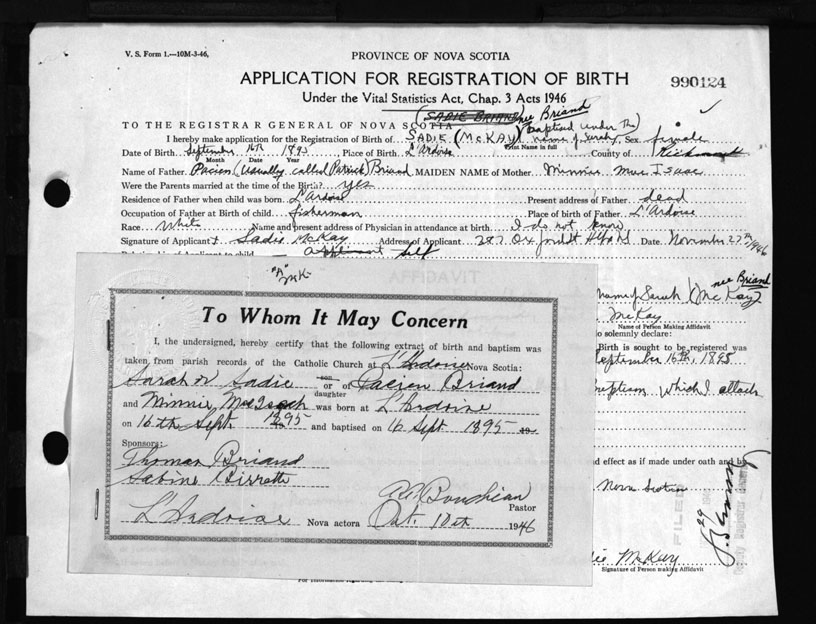 V. S. Form 1.—10M-3-46.
PROVINCE OF NOVA SCOTIA
APPLICATION FOR REGISTRATION OF BIRTH
990124
Under the Vital Statistics Act, Chap. 3 Acts 1946
(SADIE BRIAND) nee Briand
TO THE REGISTRAR GENERAL OF NOVA SCOTIA (Baptised under the
I hereby make application for the Registration of Birth of SADIE (McKAY) name of Sarah) Sex female
Print Name in full
Date of Birth September 16th 1895 Place of Birth L'Ardoise County of Richmond
Month Date Year
Name of Father (Usually called Patrick) Briand MAIDEN NAME of Mother Minnie Mac Isaac
Were the Parents married at the time of the Birth? yes
Residence of Father when child was born L'Ardoise Present address of Father dead
Occupation of Father at Birth of child fisherman Place of birth of Father L'Ardoise
Race White Name and present address of Physician in attendance at birth I do not know
Signature of Applicant Sadie McKay Address of Applicant 287 Oxford St Date November 27th 1946
applicant self
"A"
AFFIDAVIT
nee Briand
name of Sarah (McKay)
McKay
Name of Person Making Affidavit
do solemnly declare:
Birth is sought to be registered was
September 16th, 1895
which I attach
and effect as if made under oath and by
Nova Scotia
FILED
29
Sadie McKay
Signature of Person making Affidavit
To Whom It May Concern
I, the undersigned, hereby certify that the following extract of birth and baptism was
taken from parish records of the Catholic Church at L'Ardoise Nova Scotia:
Sarah or Sadie son or daughter of Pacien Briand
and Minnie MacIsaac was born at L'Ardoise
on 16th Sept. 1895 and baptised on 16 Sept 1895 19
Sponsors:
Thomas Briand
Sabine
Pastor
L'Ardoise Nova scotia Oct. 10th 1946